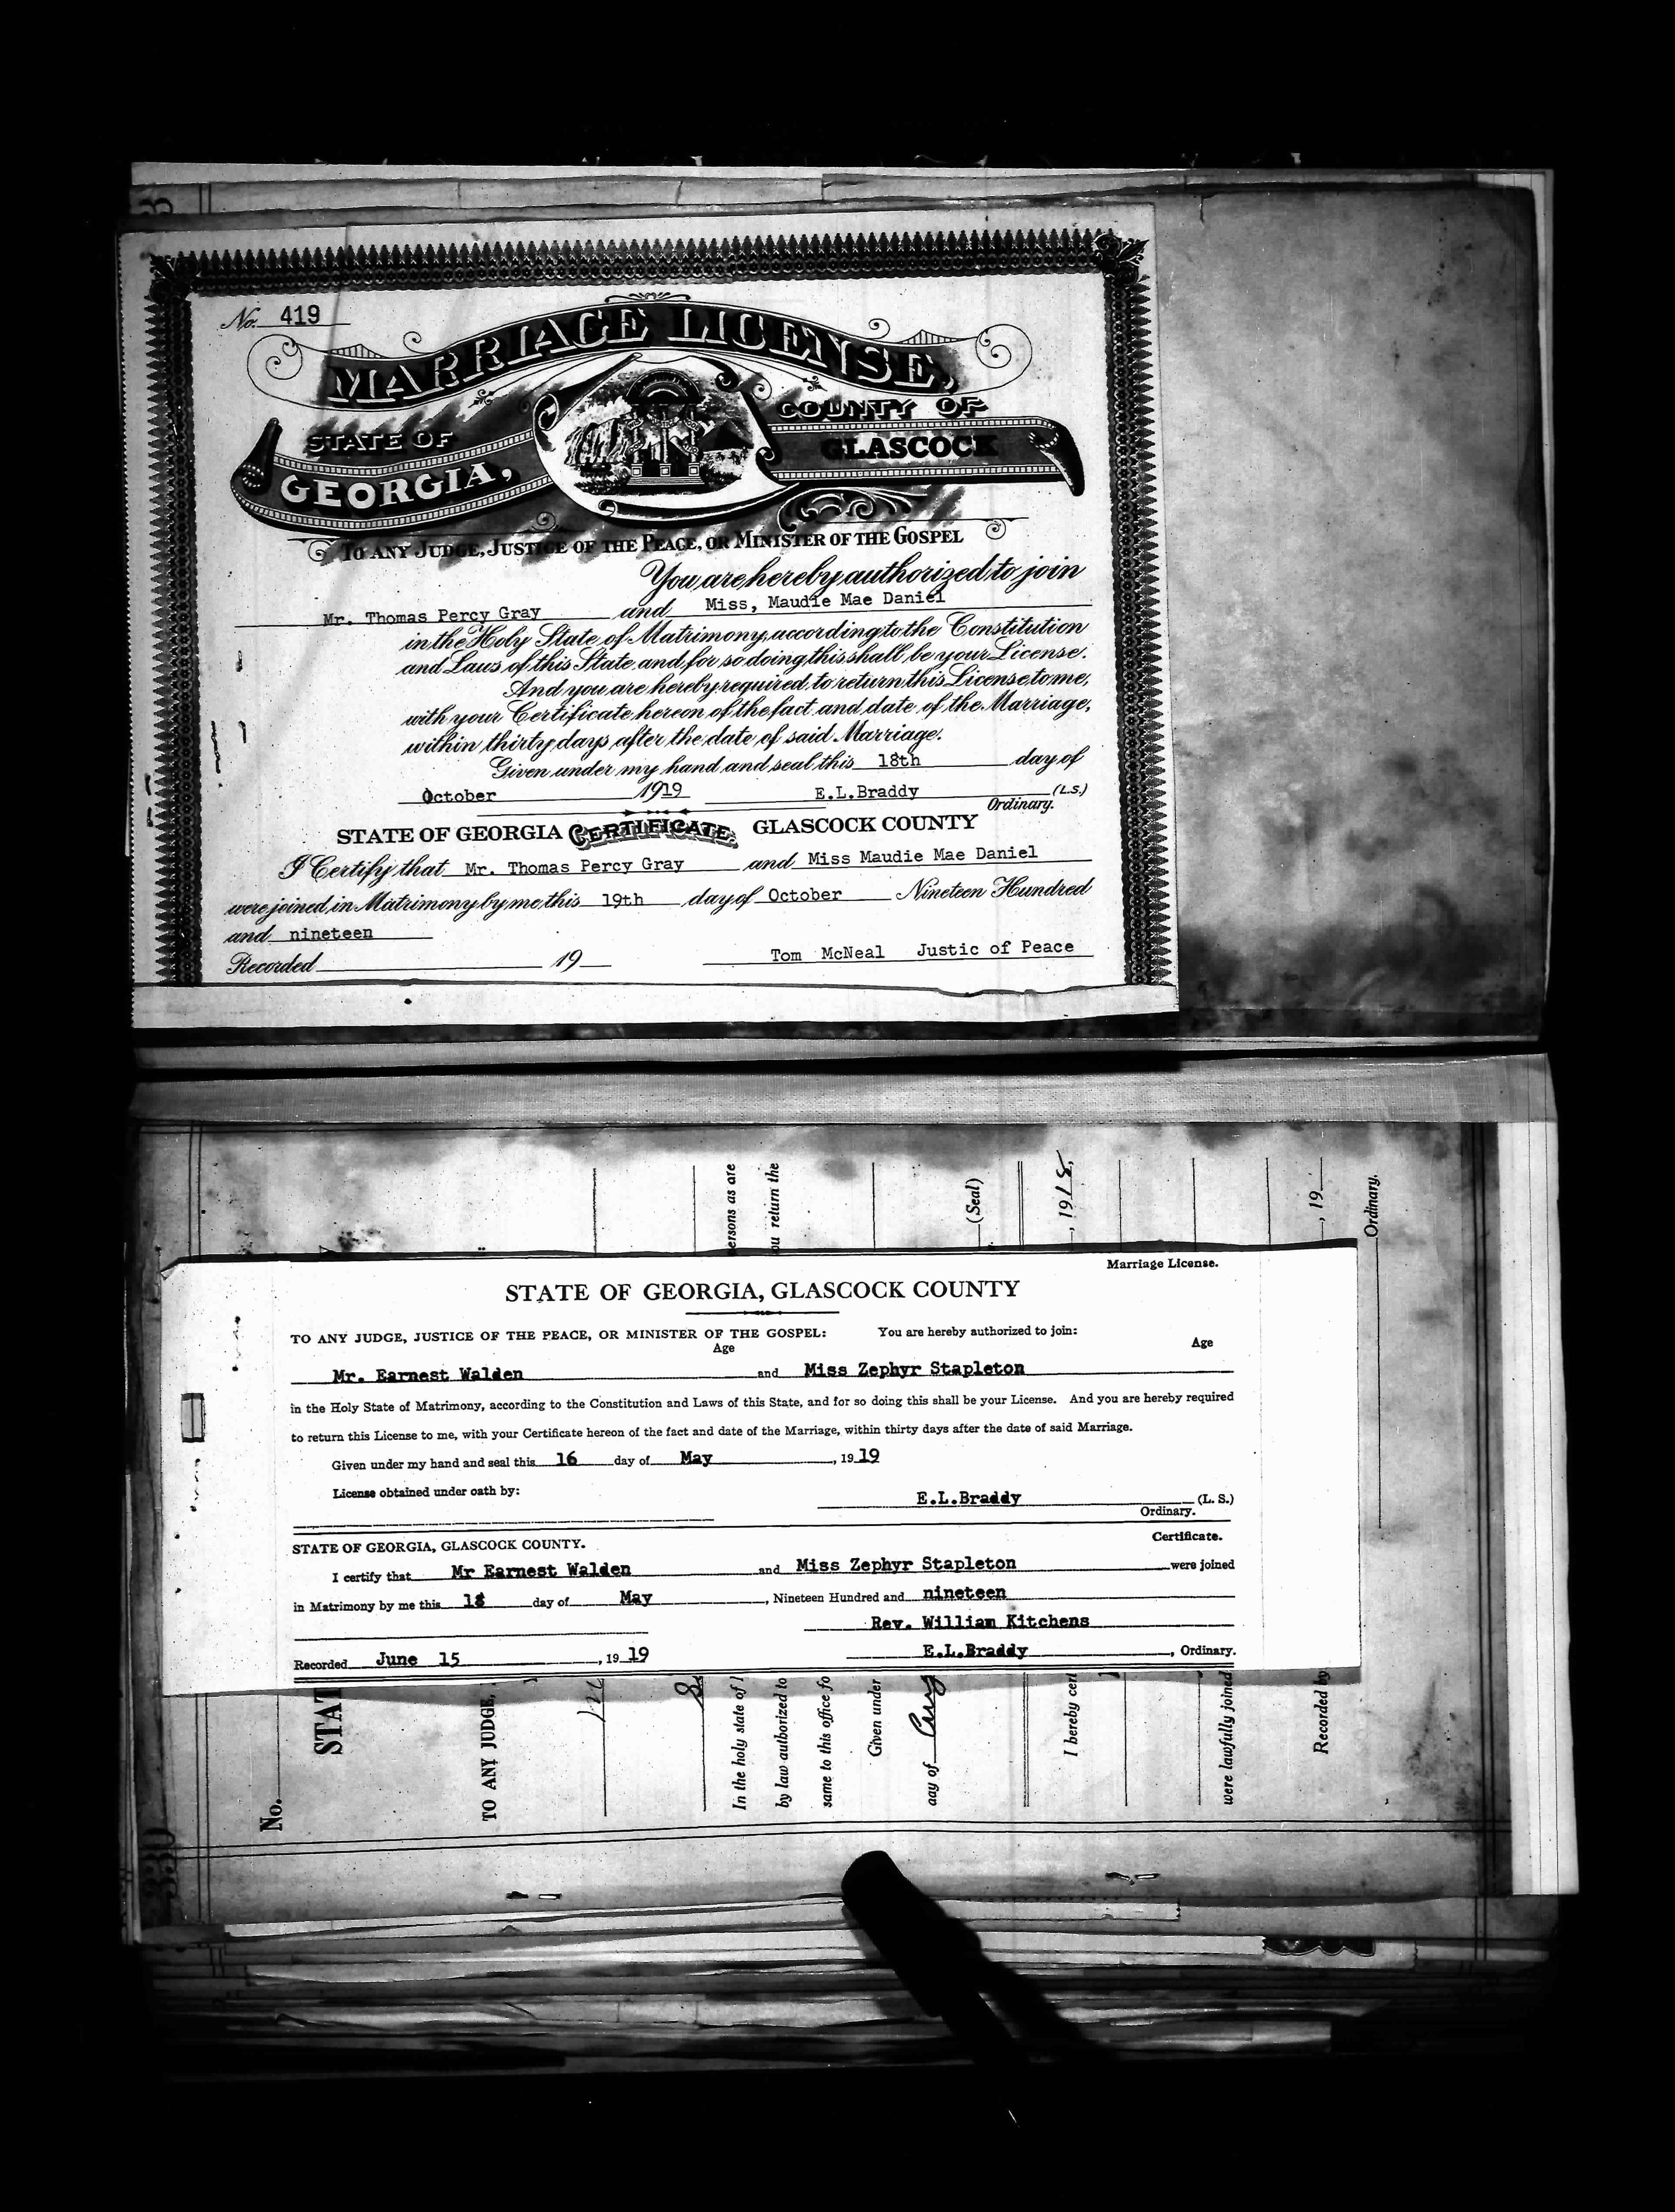 No. 419
MARRIAGE LICENSE,
STATE OF GEORGIA,
COUNTY OF GLASCOCK
TO ANY JUDGE, JUSTICE OF THE PEACE, OR MINISTER OF THE GOSPEL
You are hereby authorized to join
Mr. Thomas Percy Gray and Miss, Maudie Mae Daniel
in the Holy State of Matrimony, according to the Constitution
and Laws of this State, and for so doing this shall be your License.
And you are hereby required, to return this License to me,
with your Certificate hereon of the fact and date of the Marriage,
within thirty days after the date of said Marriage.
Given under my hand and seal this 18th day of
October 1919 E.L.Braddy (L.S.)
Ordinary.
STATE OF GEORGIA CERTIFICATE. GLASCOCK COUNTY
I Certify that Mr. Thomas Percy Gray and Miss Maudie Mae Daniel
were joined in Matrimony by me this 19th day of October Nineteen Hundred
and nineteen
Recorded 19 Tom McNeal Justic of Peace
ersons as are
ou return the
(Seal)
, 1918,
, 19
Ordinary.
Marriage License.
STATE OF GEORGIA, GLASCOCK COUNTY
TO ANY JUDGE, JUSTICE OF THE PEACE, OR MINISTER OF THE GOSPEL: You are hereby authorized to join:
Age Age
Mr. Earnest Walden and Miss Zephyr Stapleton
in the Holy State of Matrimony, according to the Constitution and Laws of this State, and for so doing this shall be your License. And you are hereby required
to return this License to me, with your Certificate hereon of the fact and date of the Marriage, within thirty days after the date of said Marriage.
Given under my hand and seal this 16 day of May, 1919
License obtained under oath by:
E.L.Braddy (L. S.)
Ordinary.
STATE OF GEORGIA, GLASCOCK COUNTY. Certificate.
I certify that Mr Earnest Walden and Miss Zephyr Stapleton were joined
in Matrimony by me this 18 day of May, Nineteen Hundred and nineteen
Rev. William Kitchens
Recorded June 15, 1919 E.L.Braddy, Ordinary.
No.
STAT
TO ANY JUDGE,
In the holy state of
by law authorized to
same to this office fo
Given under
day of Aug
I hereby cert
were lawfully joined
Recorded by
330